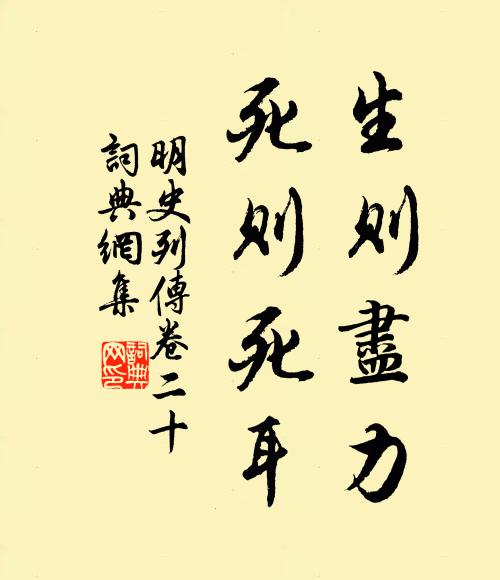 生则盡力
死则死耳
明史列傳卷二十
詞典網集
詞典网印